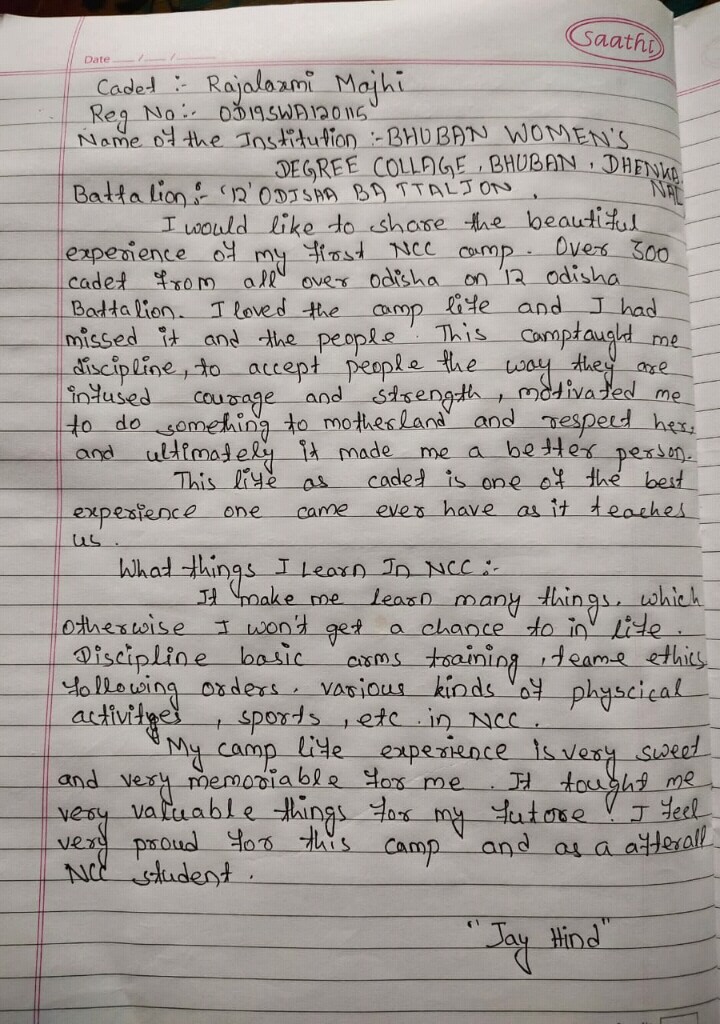 Saathi
Date
Cadet :- Rajalaxmi Majhi
Reg No:- OD19SWA120115
Name of the Institution :- BHUBAN WOMEN'S
DEGREE COLLAGE, BHUBAN, DHENKA
NAL
Battalion :- '12' ODISHA BATTALION.
I would like to share the beautiful
experience of my first NCC camp. Over 300
cadet from all over odisha on 12 odisha
Battalion. I loved the camp life and I had
missed it and the people. This camptaught me
discipline, to accept people the way they are
infused courage and strength, motivated me
to do something to motherland and respect her,
and ultimately it made me a better person.
This life as cadet is one of the best
experience one came ever have as it teaches
us.
What things I Learn In NCC :-
It make me learn many things, which
otherwise I won't get a chance to in life.
Discipline basic arms training, teame ethics
following orders, various kinds of physcical
activityes, sports, etc. in NCC.
My camp life experience is very sweet
and very memoriable for me. It tought me
very valuable things for my futore! I feel
very proud for this camp and as a afterall
NCC student.
"Jay Hind"